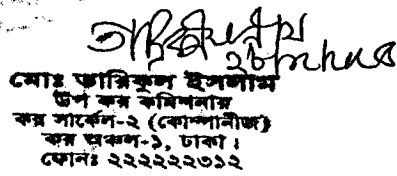 মোঃ তারিকুল ইসলাম
উপ কর কমিশনার
কর সার্কেল-২ (কোম্পানীজ)
কর অঞ্চল-১, ঢাকা।
ফোনঃ ২২২২২২৩১২